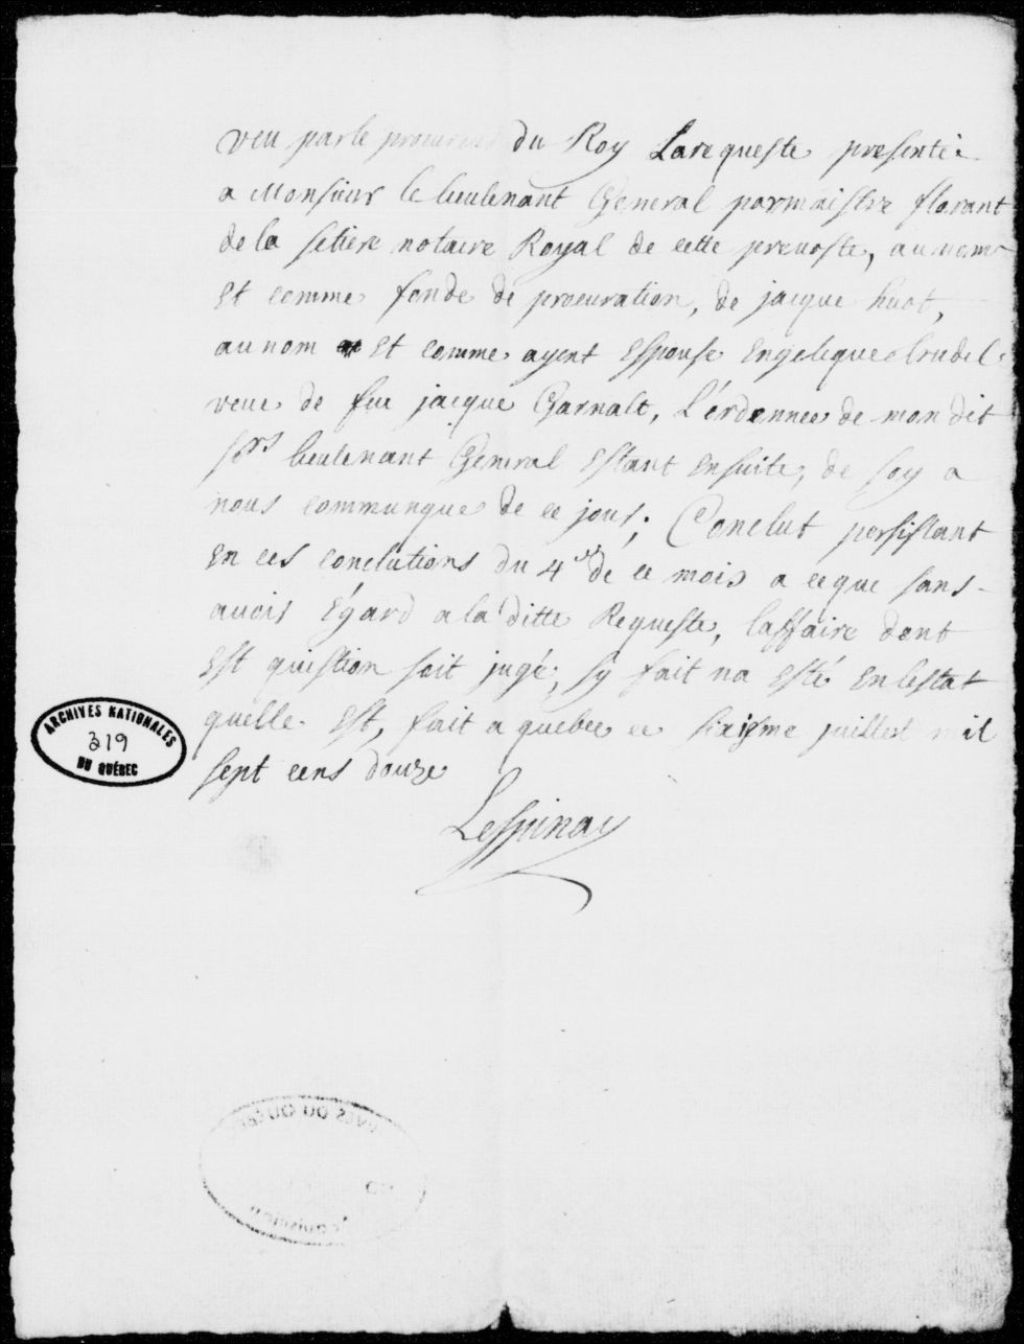 veu par le procureur du Roy Larequeste presentée
a Monsieur le lieutenant General par maistre florant
de la setiere notaire Royal de cette prevosté, au nom
Et comme fondé de procuration, de jacque huot,
au nom Et comme ayent Espousé Engelique trudel
veue de fue jacque Garnalt, L'ordonnee de mon dit
Sr. lieutenant General Estant Ensuite, de soy a
nous communqué de ce jour; Conclut persistant
En ces conclutions du 4e de ce mois a ce que sans
avoir Égard a la ditte Requeste, laffaire dont
Est quiestion soit jugé, sy fait na Esté En lestat
quelle Est, fait a quebec ce juillet mil
sept cens douze
Lespinay
ARCHIVES NATIONALES
319
DU QUÉBEC